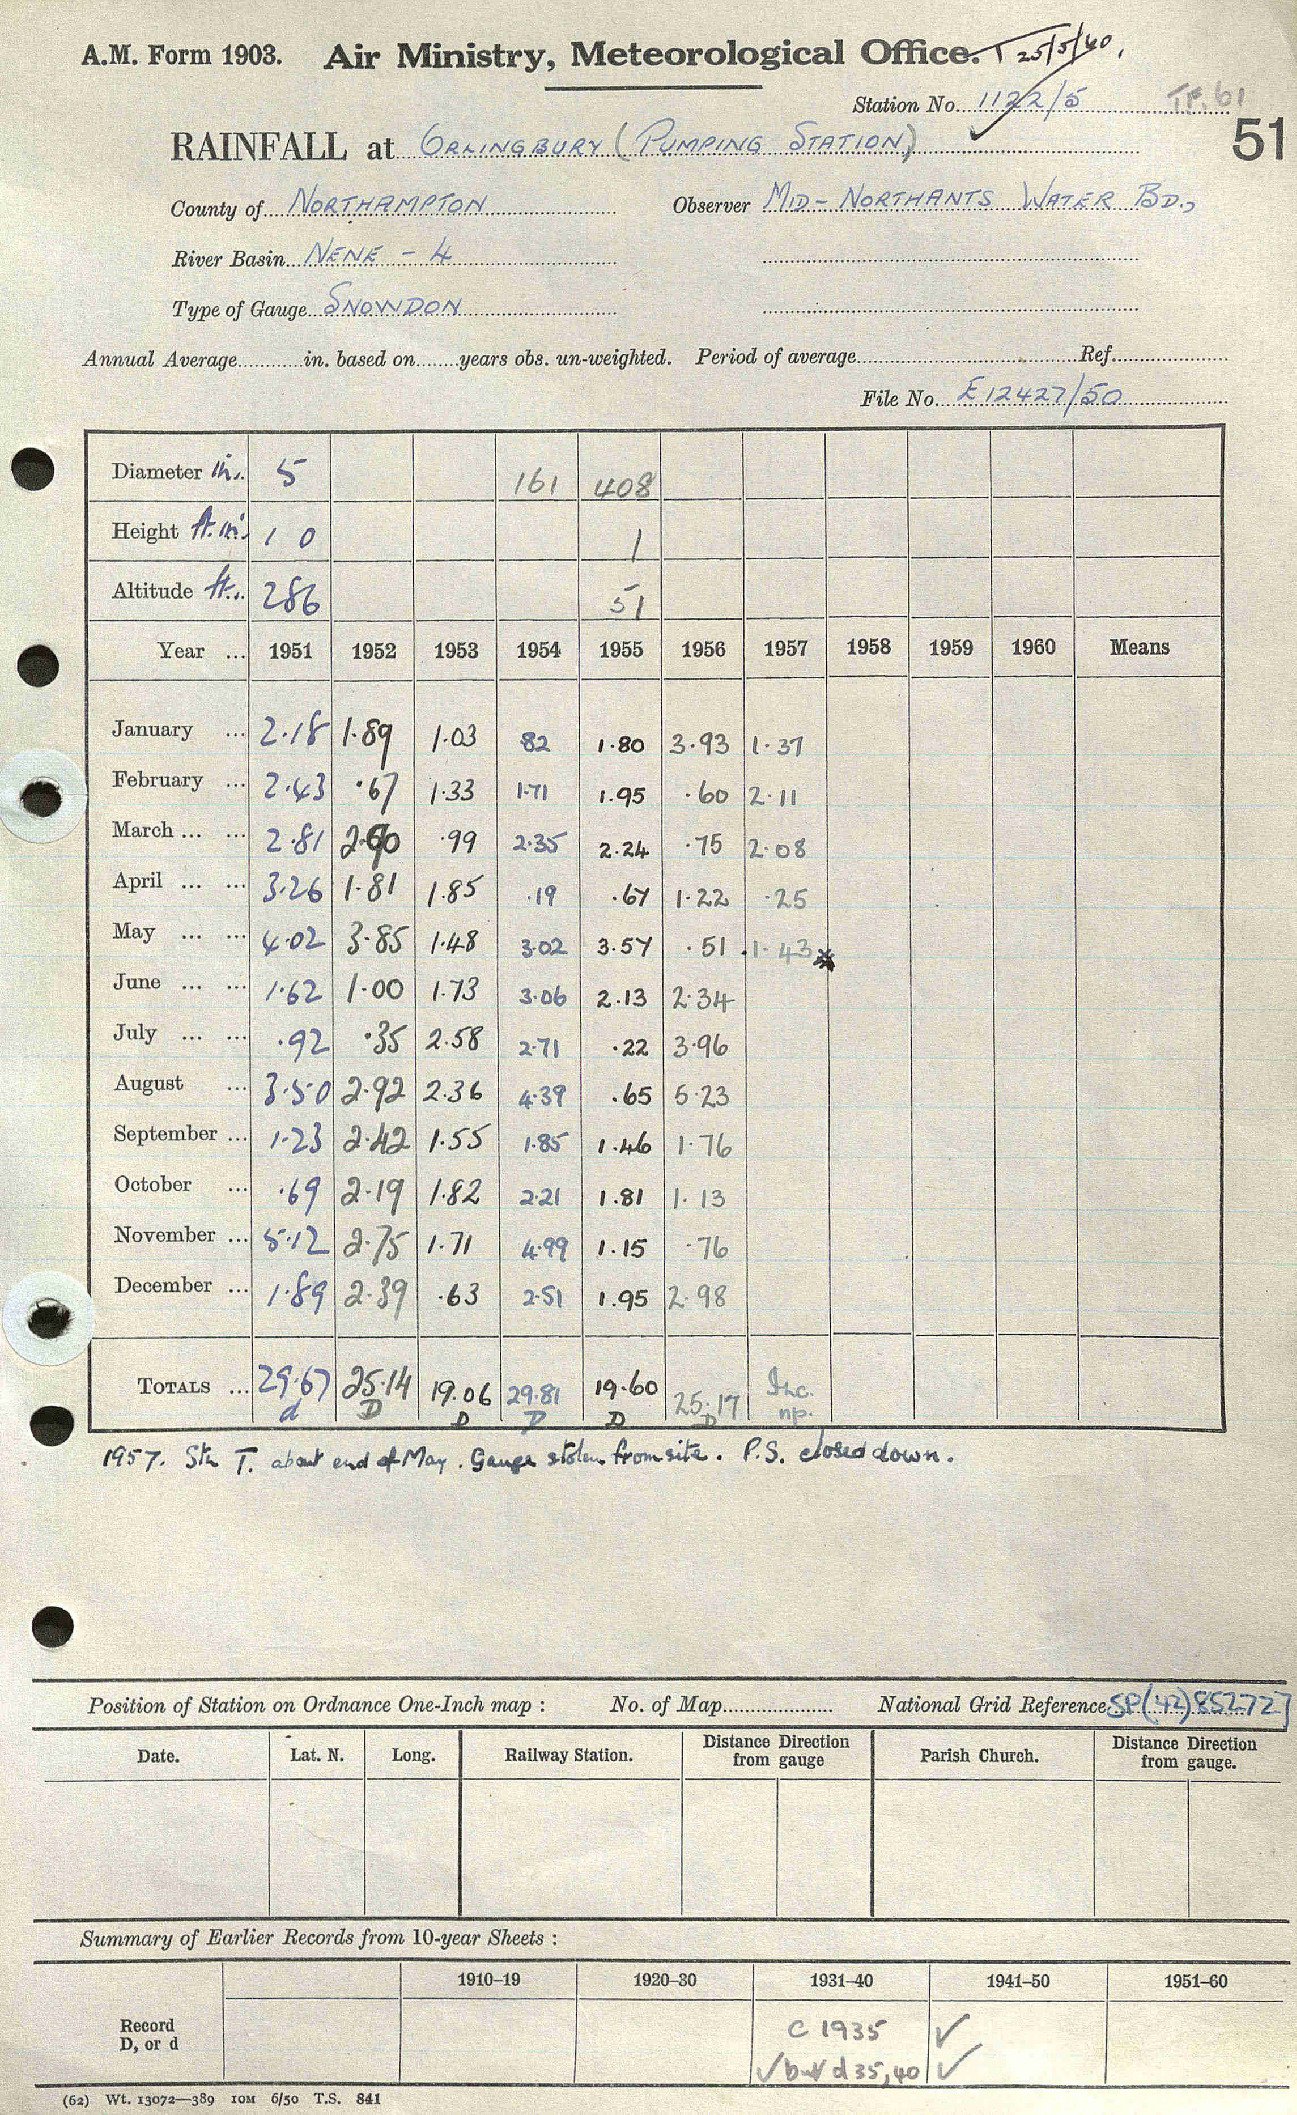 A.M. Form 1903. Air Ministry, Meteorological Office. T 25/5/40.
Station No. 1122/5 TP.61
51
RAINFALL at ORLINGBURY (PUMPING STATION)
County of NORTHAMPTON Observer MID-NORTHANTS WATER BD.,
River Basin NENE - 4
Type of Gauge SNOWDON
Annual Average in. based on years obs. un-weighted. Period of average Ref.
File No. E12427/50
Diameter in. 5 161 408
Height ft. in. 1 0 1
Altitude ft. 286 51
Year ... 1951 1952 1953 1954 1955 1956 1957 1958 1959 1960 Means
January ... 2.18 1.89 1.03 82 1.80 3.93 1.37
February ... 2.43 .67 1.33 1.71 1.95 .60 2.11
March ... ... 2.81 .99 2.35 2.24 .75 2.08
April ... ... 3.26 1.81 1.85 .19 .67 1.22 .25
May ... ... 4.02 3.85 1.48 3.02 3.57 .51 1.43 *
June ... ... 1.62 1.00 1.73 3.06 2.13 2.34
July ... ... .92 .35 2.58 2.71 .22 3.96
August ... 3.50 2.92 2.36 4.39 .65 5.23
September ... 1.23 2.42 1.55 1.85 1.46 1.76
October ... .69 2.19 1.82 2.21 1.81 1.13
November ... 5.12 2.75 1.71 4.99 1.15 .76
December ... 1.89 2.39 .63 2.51 1.95 2.98
TOTALS ... 29.67 25.14 19.06 29.81 19.60 25.17 Inc.
d D D D D D np.
1957. Stn T. about end of May. Gauge stolen from site. P.S. closed down.
Position of Station on Ordnance One-Inch map : No. of Map National Grid Reference SP(42)852727
Date. Lat. N. Long. Railway Station. Distance Direction from gauge Parish Church. Distance Direction from gauge.
Summary of Earlier Records from 10-year Sheets :
1910–19 1920–30 1931–40 1941–50 1951–60
Record C 1935 ✓
D, or d ✓ but d 35,40 ✓
(62) Wt. 13072—389 10M 6/50 T.S. 841